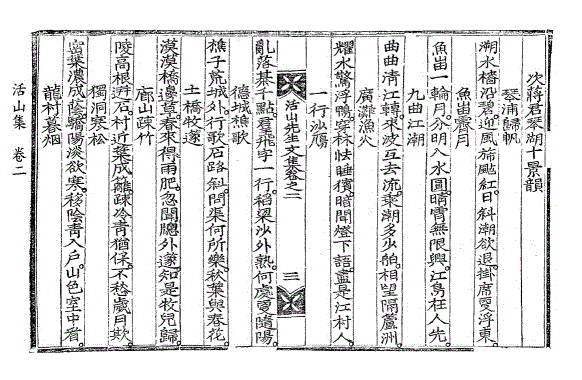 次蔣君琴湖十景韻
琴浦歸帆
溯水檣沿碧。迎風旆颭紅。日斜潮欲退。掛席更浮東。
魚峀霽月
魚峀一輪月。分明入水圓。晴霄無限興。江鳥枉人先。
九曲江潮
曲曲淸江轉。來波互去流。乘潮多少舶。相望隔蘆洲。
廣灘漁火
耀水驚浮鴨。穿林怯睡獱。暗聞燈下語。盡是江村人。
一行沙鴈
活山先生文集卷之二 三
亂落棊千點。羣飛字一行。稻粱沙外熟。何處更隨陽。
德城樵歌
樵子荒城外。行歌石路斜。問渠何所樂。秋葉與春花。
土橋牧篴
漠漠橋邊草。春來得雨肥。忽聞牕外篴。知是牧兒歸。
廊山疎竹
陵高根迸石。村近葉成籬。疎冷靑猶保。不愁歲月欺。
獨洞寒松
密葉濃成蔭。驕陽淡欲寒。移陰靑入戶。山色室中看。
龍村暮烟
活山集 卷二